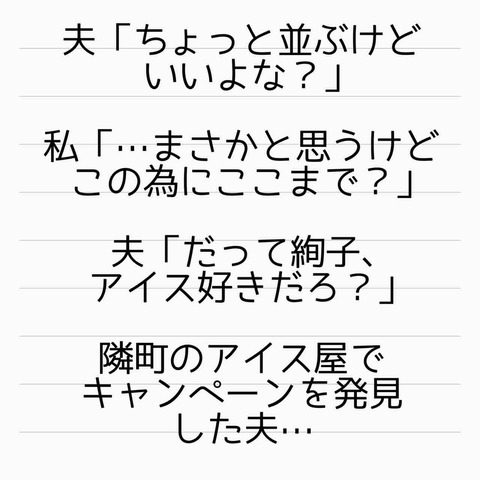 夫「ちょっと並ぶけど
いいよな？」
私「…まさかと思うけど
この為にここまで？」
夫「だって絢子、
アイス好きだろ？」
隣町のアイス屋で
キャンペーンを発見
した夫…